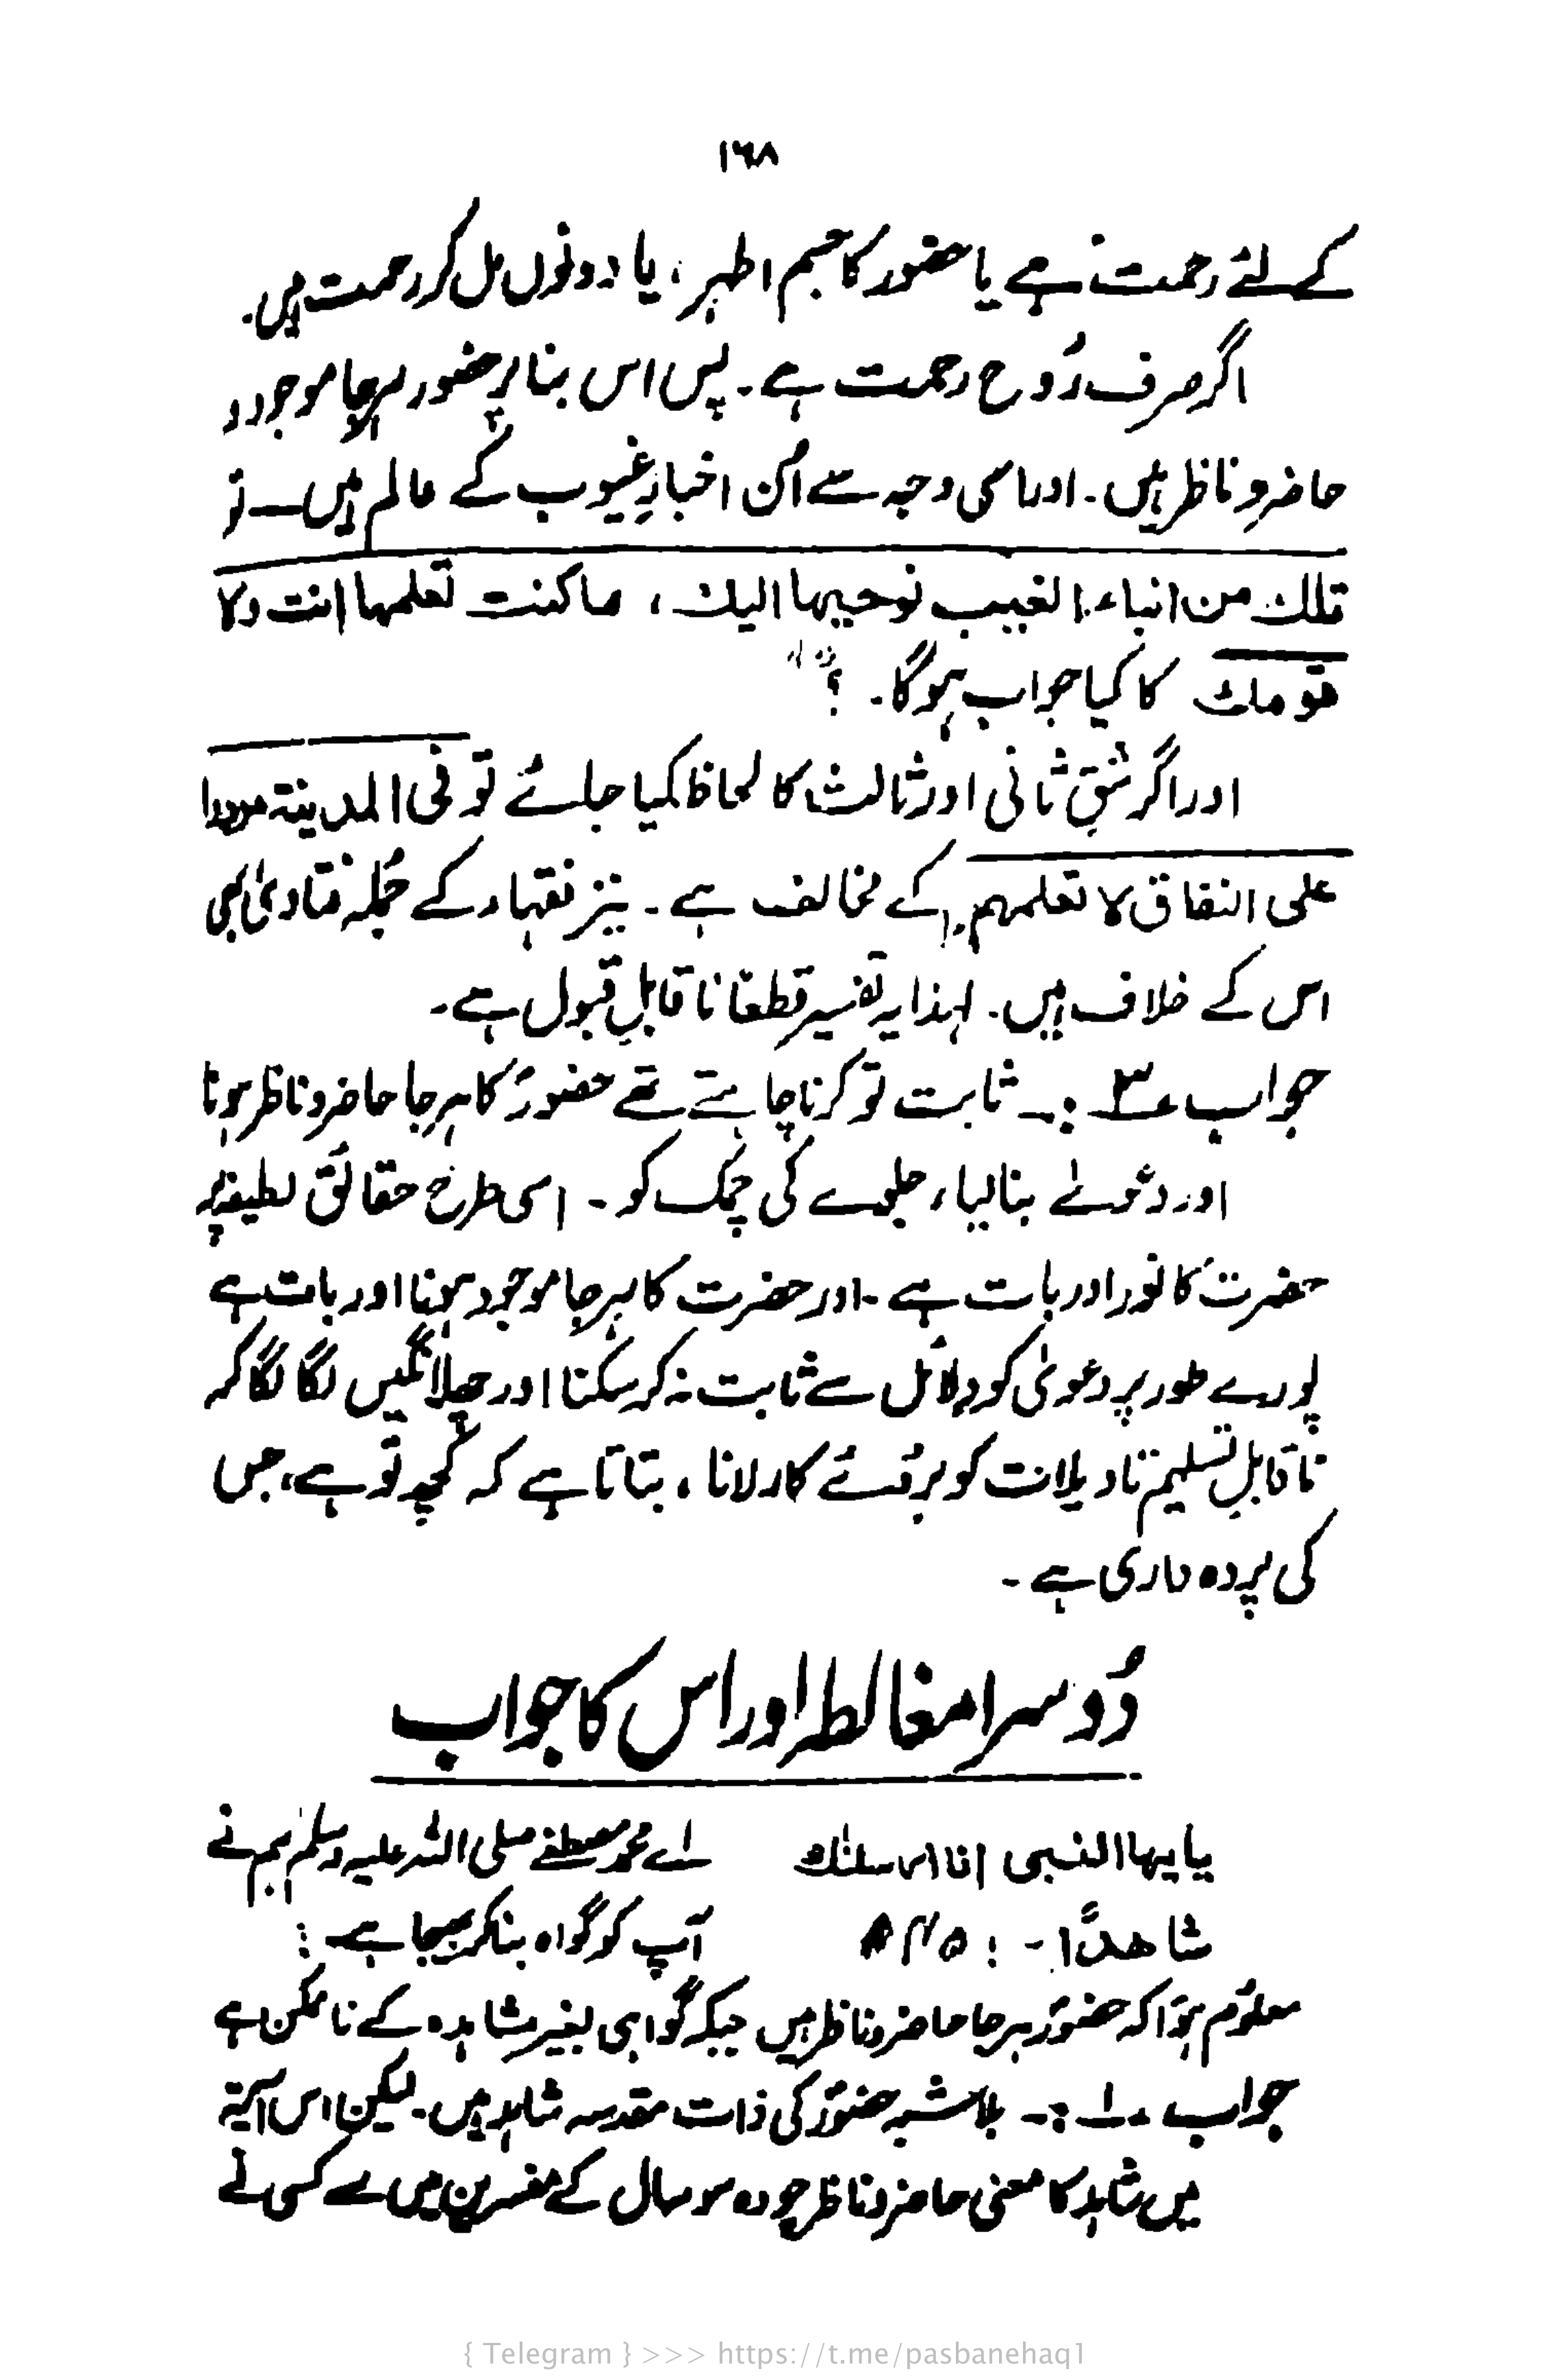 ١٦٨
کے لئے رحمت ہے یا حضور کا جسم اطہر، یا دونوں مل کر رحمت ہیں۔
اگر صرف رُوح رحمت ہے۔ پس اس بنا پر حضور ہر جا موجود و
حاضر و ناظر ہیں۔ اور اسی وجہ سے اُن اخبارِ غیوب کے عالم ہیں ــ تو
تلك من انباء الغيب نوحيها اليك، ما كنت تعلمها انت ولا
قومك کا کیا جواب ہوگا۔ ؟
اور اگر شقِ ثانی اور ثالث کا لحاظ کیا جائے تو فی المدينة مردوا
على النفاق لا تعلمهم۔ کے مخالف ہے۔ نیز فقہاء کے جُملہ فتاویٰ بھی
اس کے خلاف ہیں۔ لہذا یہ تفسیر قطعًا ناقابلِ قبول ہے۔
جواب ع٣ :۔ ثابت تو کرنا چاہتے تھے حضورؐ کا ہر جا حاضر و ناظر ہونا
اور دعوےٰ بنا لیا، جلوے کی چمک کو۔ اسی طرح حقائق لطیفہ پر
حضرت کا نور اور بات ہے۔ اور حضرت کا ہر جا موجود ہونا اور بات ہے
پورے طور پر دعویٰ کو دلائل سے ثابت نہ کر سکنا اور چھلانگیں لگا لگا کر
ناقابلِ تسلیم تاویلات کو بروئے کار لانا، بتاتا ہے کہ کُچھ تو ہے، جس
کی پردہ داری ہے۔
دُوسرا مغالطہ اور اس کا جواب
يايها النبى انا ارسلنٰك اے محمد مصطفےٰ صلی اللہ علیہ وسلم ہم نے
شاهدًا۔ : آپ کو گواہ بنکر بھیجا ہے :
معلوم ہوا کہ حضورؐ ہر جا حاضر و ناظر ہیں جبکہ گواہی بغیر مشاہدہ کے ناممکن ہے
جواب ١ :۔ بلاشبہ حضورؐ کی ذات مقدسہ شاہد ہیں۔ لیکن اس آیۃ
میں شاہد کا معنی حاضر و ناظر چودہ سو سال کے مفسرین میں سے کسی نے
{ Telegram } >>> https://t.me/pasbanehaq1